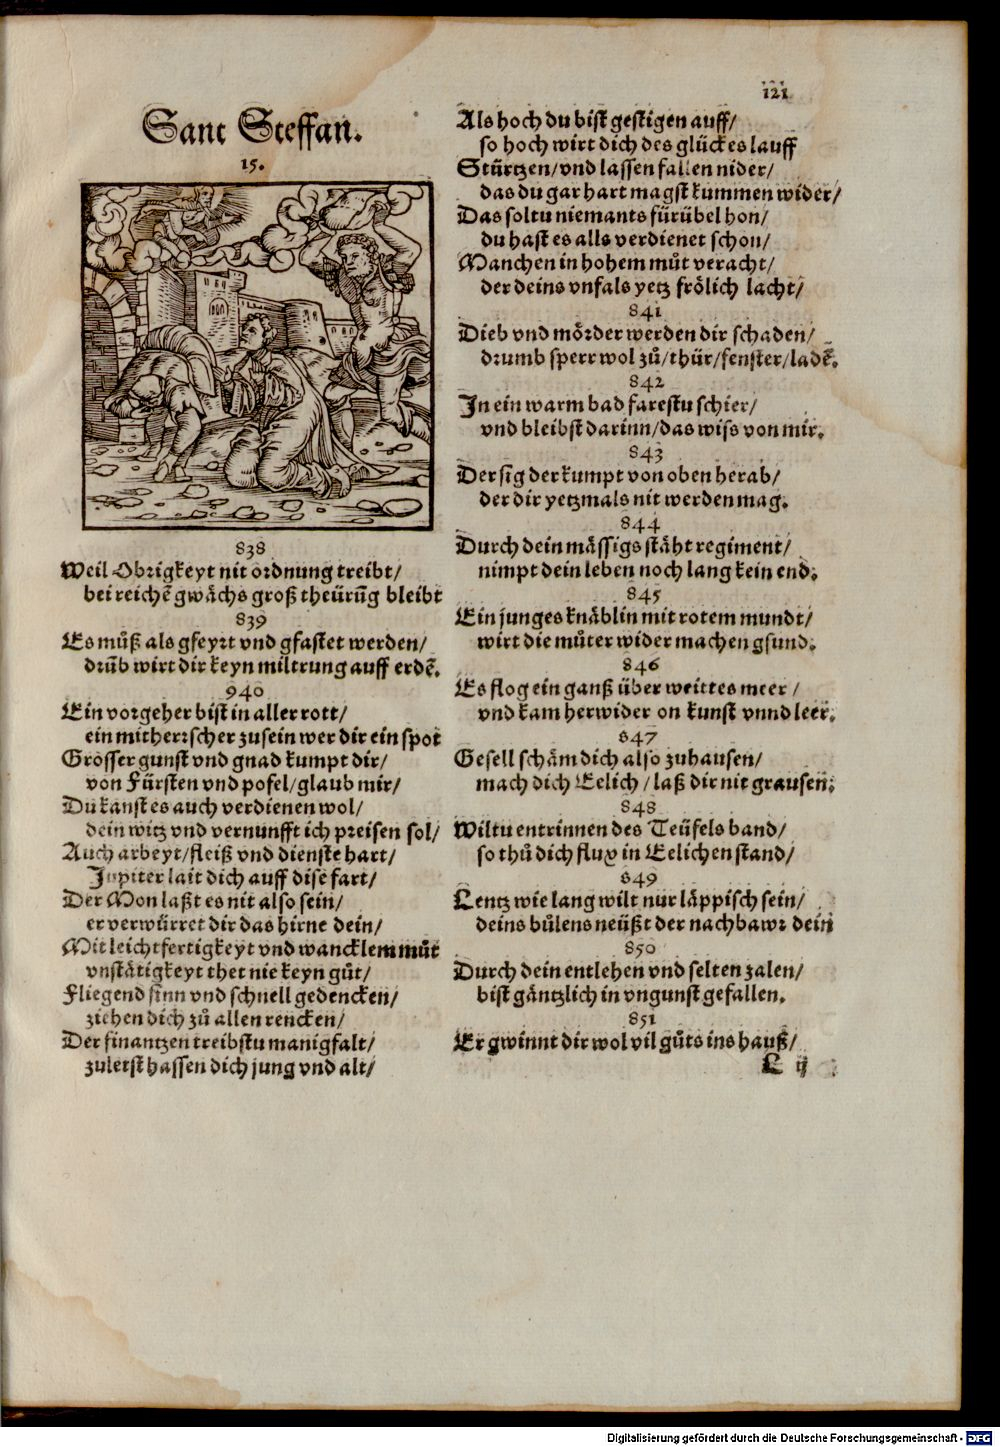 121
Sant Steffan.
15.
838
Weil Obrigkeyt nit ordnung treibt/
bei reichē gwächs groß theürūg bleibt
839
Es můß als gfeyrt vnd gfastet werden/
drūb wirt dir keyn miltrung auff erdē.
940
Ein vorgeher bist in aller rott/
ein mitherrscher zusein wer dir ein spot
Grösser gunst vnd gnad kumpt dir/
von Fürsten vnd pofel/glaub mir/
Du kanst es auch verdienen wol/
dein witz vnd vernunfft ich preisen sol/
Auch arbeyt/fleiß vnd dienste hart/
Jupiter lait dich auff dise fart/
Der Mon laßt es nit also sein/
er verwürret dir das hirne dein/
Mit leichtfertigkeyt vnd wancklem můt
vnstätigkeyt thet nie keyn gůt/
Fliegend sinn vnd schnell gedencken/
ziehen dich zů allen rencken/
Der finantzen treibstu manigfalt/
zuletst hassen dich jung vnd alt/
Als hoch du bist gestigen auff/
so hoch wirt dich des glückes lauff
Stürtzen/vnd lassen fallen nider/
das du gar hart magst kummen wider/
Das soltu niemants für übel hon/
du hast es alls verdienet schon/
Manchen in hohem můt veracht/
der deins vnfals yetz frölich lacht/
841
Dieb vnd mörder werden dir schaden/
drumb sperr wol zů/thür/fenster/ladē.
842
In ein warm bad farestu schier/
vnd bleibst darinn/das wiss von mir.
843
Der sig der kumpt von oben herab/
der dir yetzmals nit werden mag.
844
Durch dein mässigs stäht regiment/
nimpt dein leben noch lang kein end.
845
Ein junges knäblin mit rotem mundt/
wirt die můter wider machen gsund.
846
Es flog ein ganß über weittes meer/
vnd kam herwider on kunst vnnd leer.
847
Gesell schäm dich also zuhausen/
mach dich Eelich/laß dir nit grausen.
848
Wiltu entrinnen des Teüfels band/
so thů dich flux in Eelichen stand/
849
Lentz wie lang wilt nur läppisch sein/
deins bůlens neüßt der nachbawr dein
850
Durch dein entlehen vnd selten zalen/
bist gäntzlich in vngunst gefallen.
851
Er gwinnt dir wol vil gůts ins hauß/
L ij
Digitalisierung gefördert durch die Deutsche Forschungsgemeinschaft - DFG